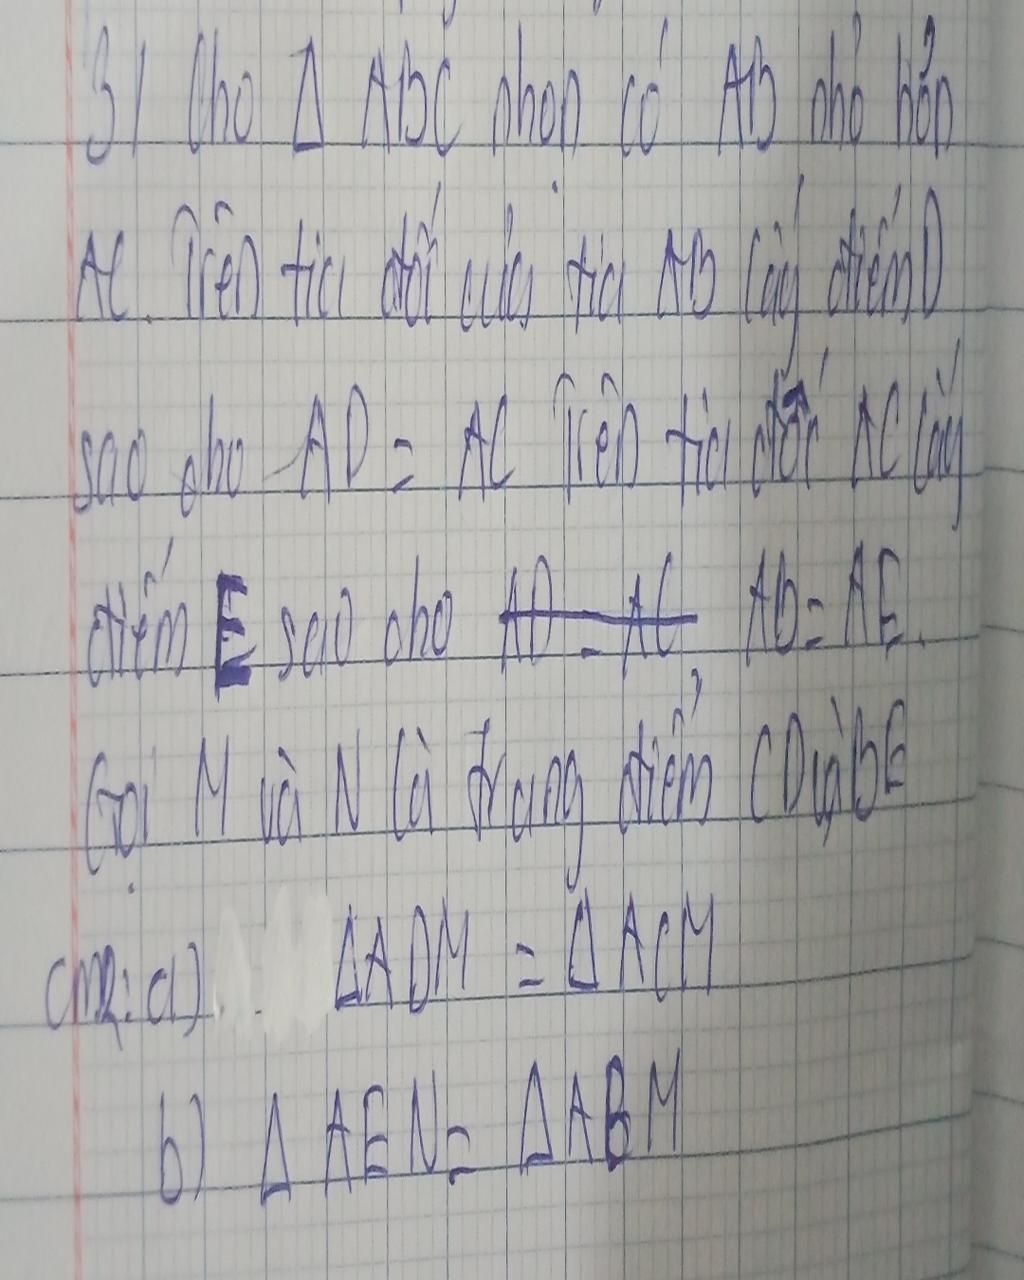 3/ Cho Δ ABC nhọn có AB nhỏ hơn
AC. Trên tia đối của tia AB lấy điểm D
sao cho AD = AC Trên tia đối AC lấy
điểm E sao cho AD = AC AB = AE.
Gọi M và N là trung điểm CD và BE
CMR: a) ΔADM = ΔACM
b) Δ AEN = ΔABM